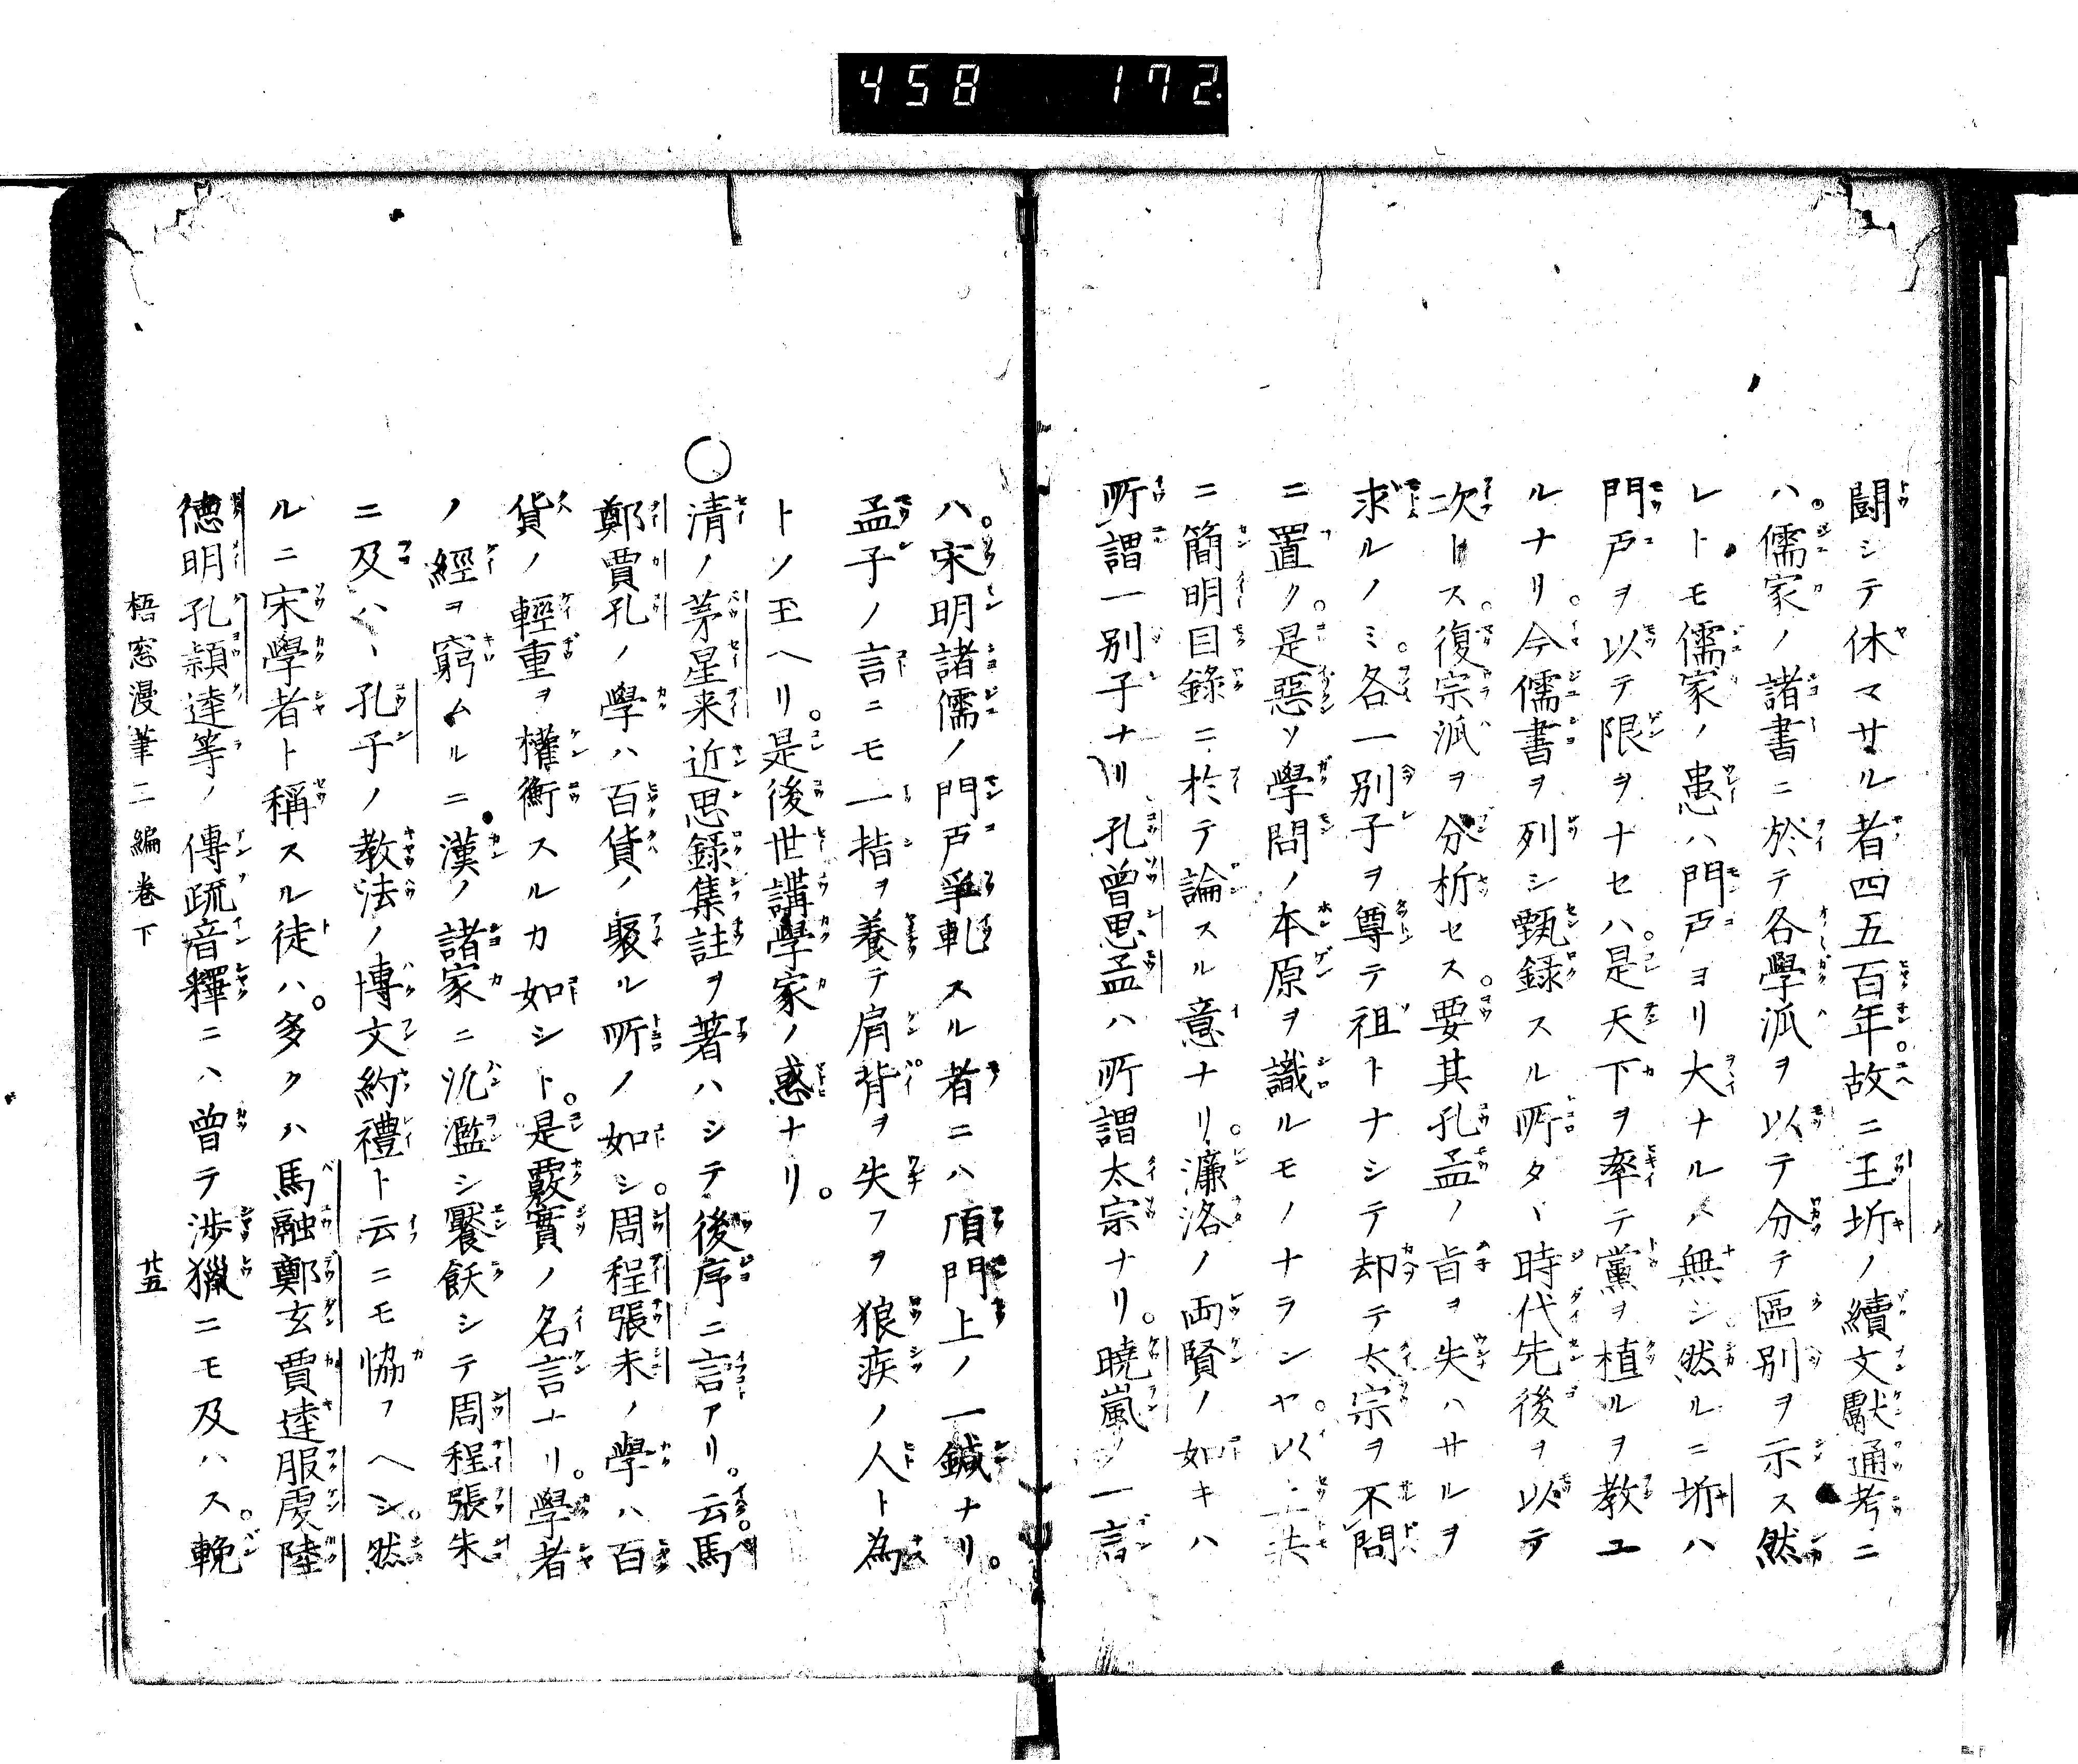 458 172
闘シテ休マサル者四五百年。故ニ王圻ノ續文獻通考ニ
ハ。儒家ノ諸書ニ於テ各學派ヲ以テ分チ區別ヲ示ス然
レトモ儒家ノ患ハ門戸ヨリ大ナルハ無シ。然ルニ圻ハ
門戸ヲ以テ限ヲナセハ。是天下ヲ率テ黨ヲ植ルヲ教ユ
ルナリ。今儒書ヲ列シ甄録スル所タヽ時代先後ヲ以テ
次トス。復宗派ヲ分析セス。要其孔孟ノ旨ヲ失ハサルヲ
求ルノミ。各一別子ヲ尊テ祖トナシテ却テ太宗ヲ不問
ニ置ク。是惡ソ學問ノ本原ヲ識ルモノナランヤ。以上共
ニ簡明目錄ニ於テ論スル意ナリ。濂洛ノ両賢ノ如キハ
所謂一別子ナリ孔曾思孟ハ所謂太宗ナリ。曉嵐ノ一言
ハ。宋明諸儒ノ門戸爭軋スル者ニハ頂門上ノ一鍼ナリ。
孟子ノ言ニモ一指ヲ養テ肩背ヲ失フヲ狼疾ノ人ト為
トソ玉ヘリ。是後世講學家ノ惑ナリ。
○清ノ茅星来近思錄集註ヲ著ハシテ後序ニ言アリ。云馬
鄭賈孔ノ學ハ百貨ノ聚ル所ノ如シ。周程張朱ノ學ハ百
貨ノ輕重ヲ權衡スルカ如シト。是覈實ノ名言ナリ。學者
ノ經ヲ窮ムルニ漢ノ諸家ニ氿濫シ饜飫シテ周程張朱
ニ及ハヽ孔子ノ教法ノ博文約禮ト云ニモ恊フヘシ。然
ルニ宋學者ト稱スル徒ハ。多クハ馬融鄭玄賈逵服虔陸
德明孔穎達等ノ傳疏音釋ニハ曾テ渉獵ニモ及ハス。輓
梧窓漫筆二編巻下 廿五